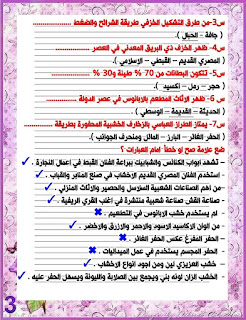 س3-من طرق التشكيل الخزفي طريقة الشرائح والضغط ..............
( جافة - الحبال ).
س4- ظهر الخزف ذي البريق المعدني في العصر ..............
( المصري القديم - القبطي - الإسلامي ).
س5- تتكون البطانات من 70 % طينة و30 % ..............
( حجر - رمل - أكسيد ).
س6- ظهر الأثاث المطعم بالأبنوس في عصر الدولة ..............
( الحديثة - القديمة - الوسطي ).
س7- يمتاز الطراز العباسي بالزخارف الخشبية المحفورة بطريقة ..........
( الحفر الغائر - البارز - المائل ومنحرف الجوانب ).
ضع علامة صح او خطأ امام العبارات ؟
- تشهد ابواب الكنائس والشبابيك ببراعة الفنان القبط في أعمال النجارة . ✓
- استخدم الفنان المصري القديم الاخشاب في صنع المنابر والشباب . ✓
- من أهم الصناعات الشعبية السلاسل والحصير والأثاث المنزلي . ✓
- صناعة القفص صناعة شعبية منتشرة في أغلب القري الريفية . ✓
- لم يستخدم خشب الابانوس في التطعيم . ✖
- من ألوان الاكاسيد الاسود والاحمر والازرق والاخضر . ✓
- الحفر المفرغ عكس الحفر الغائر . ✖
- الحفر المجسم يستخدم في عمل الميداليات . ✖
- خشب العزيزي لين ومن أجود أنواع الاخشاب . ✓
- الخشب الزان لونه بني ويجمع بين الصلابة والليونة ويسهل الحفر عليه . ✓
3